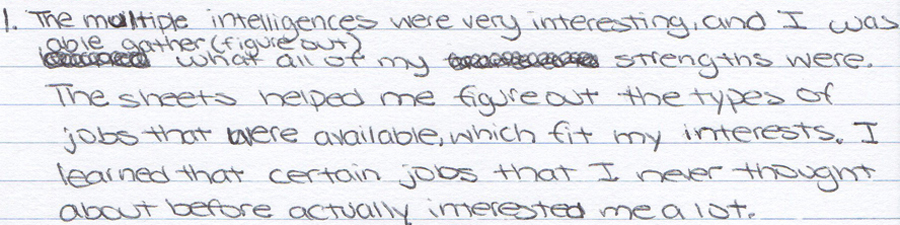 1. The multiple intelligences were very interesting, and I was
able gather (figure out)
what all of my strengths were.
The sheets helped me figure out the types of
jobs that were available, which fit my interests. I
learned that certain jobs that I never thought
about before actually interested me a lot.